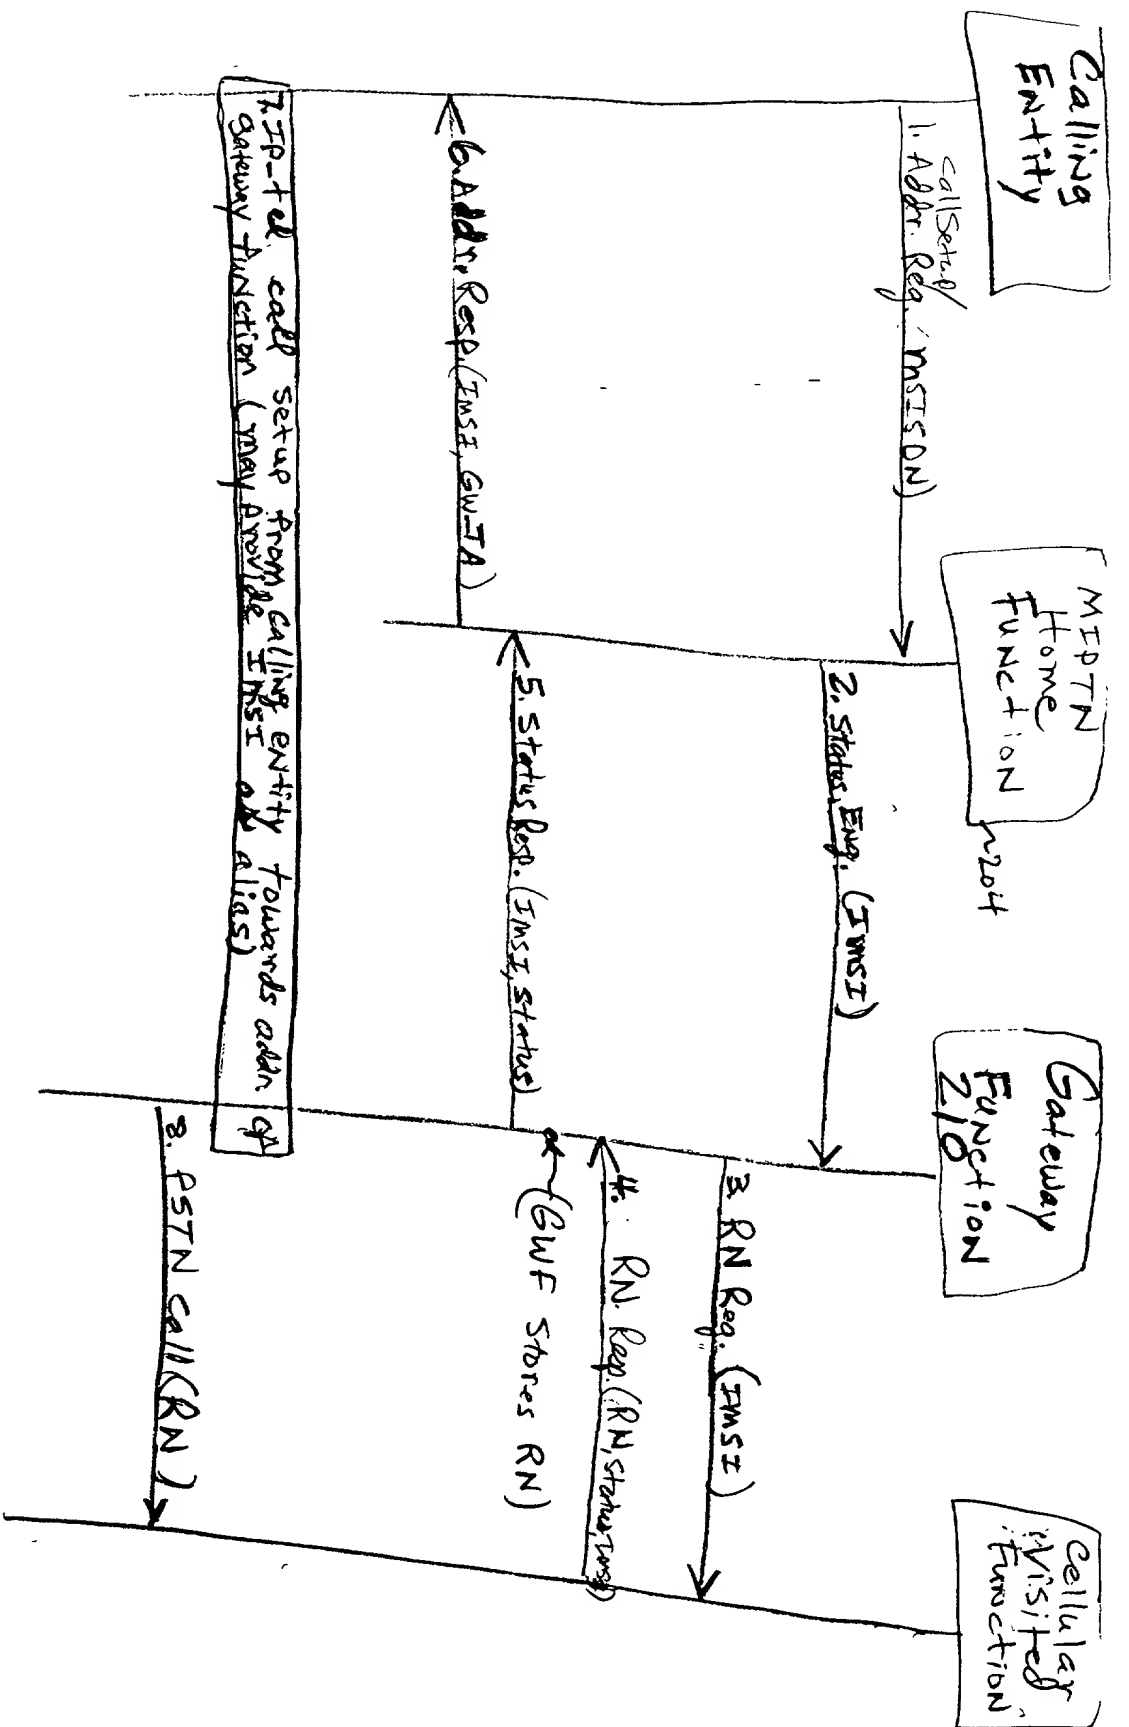 Calling
Entity
MIPTN
Home
Function
~204
Gateway
Function
210
Cellular
Visited
Function
Call Setup/
1. Addr. Req. MSISDN)
2. Status Enq. (IMSI)
3. RN Req. (IMSI)
4. RN. Resp. (RN, status, IMSI)
(GWF Stores RN)
5. Status Resp. (IMSI, status)
6. Addr. Resp. (IMSI, GW-TA)
7. IP-tel call setup from calling entity towards addr. of
gateway function (may provide IMSI as alias)
8. PSTN Call (RN)